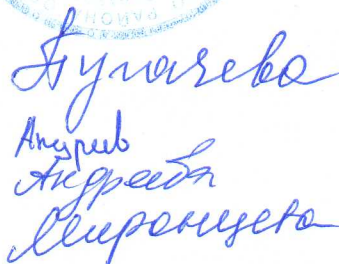 Пугачева
Андреев
Андреева
Миронцева